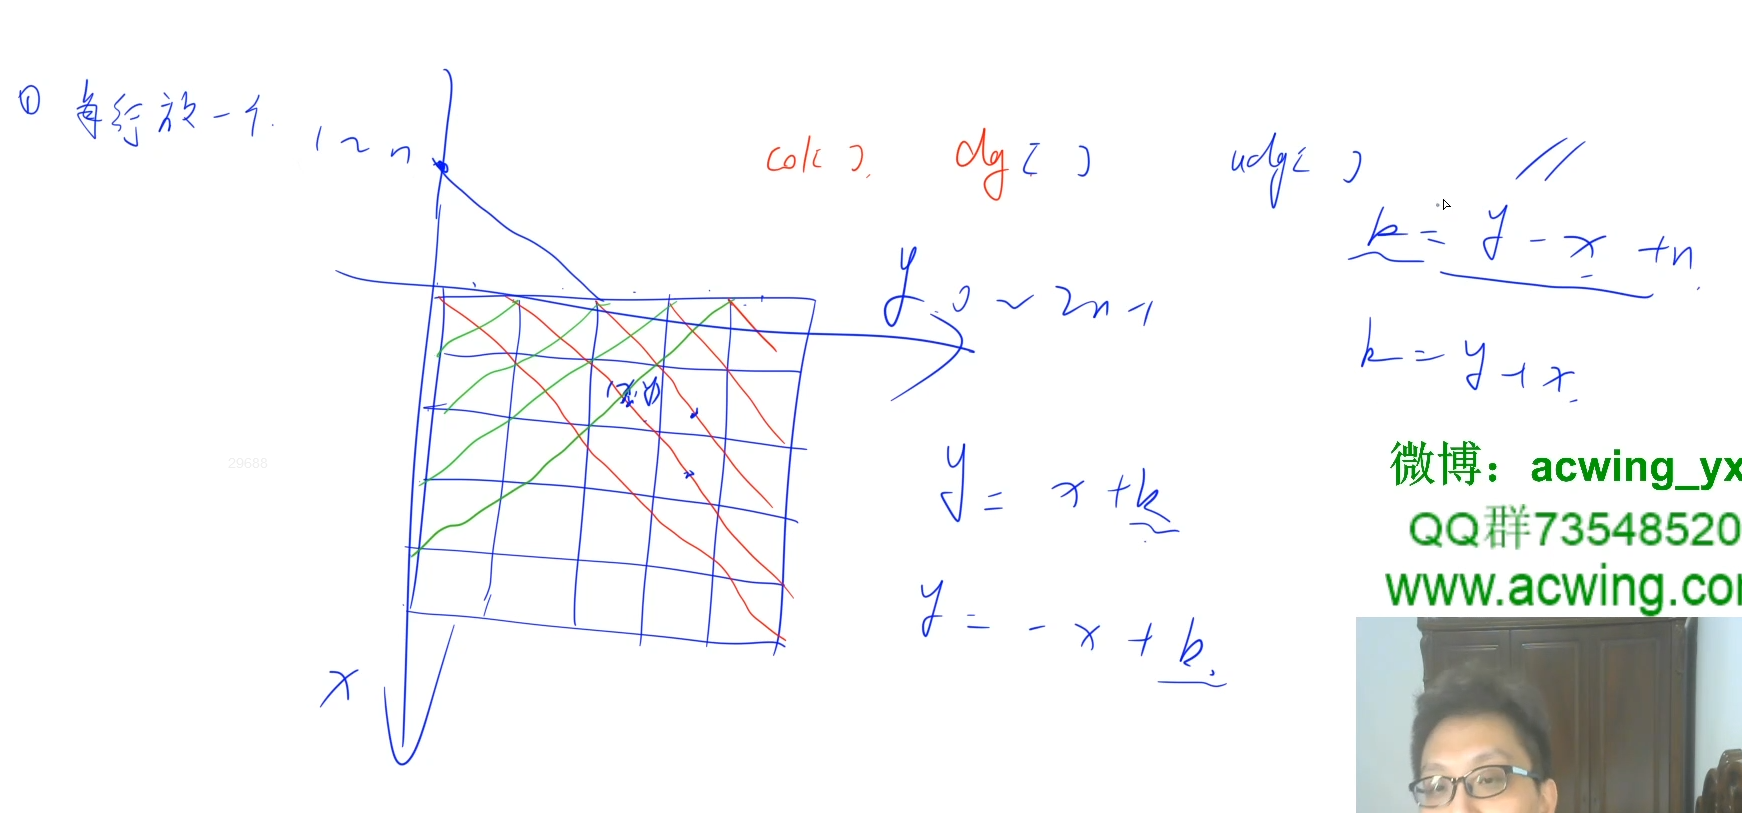 ① 每行放一个.
1 ~ n
col[ ]. dg[ ] udg[ ]
k = y - x + n.
y
0 ~ 2n-1
k = y + x.
(x, y)
29688
微博：acwing_yx
y = x + k
QQ群73548520
www.acwing.co
y = - x + k.
x